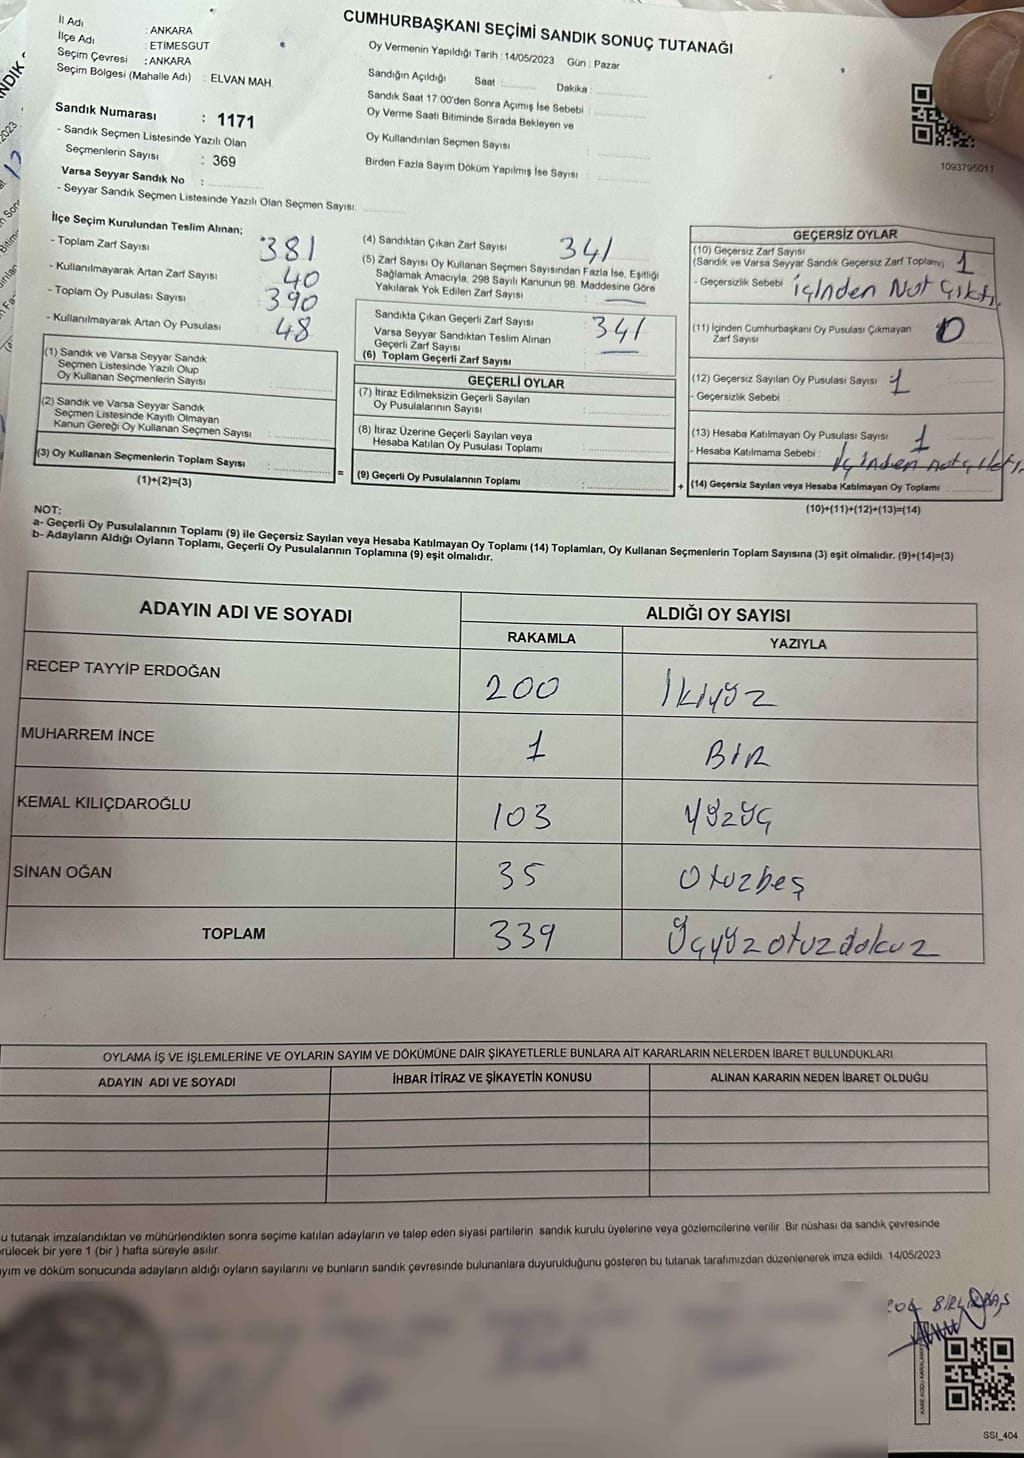 CUMHURBAŞKANI SEÇİMİ SANDIK SONUÇ TUTANAĞI
İl Adı : ANKARA
İlçe Adı : ETİMESGUT
Seçim Çevresi : ANKARA
Seçim Bölgesi (Mahalle Adı) : ELVAN MAH
Sandık Numarası : 1171
- Sandık Seçmen Listesinde Yazılı Olan
Seçmenlerin Sayısı : 369
Varsa Seyyar Sandık No :
- Seyyar Sandık Seçmen Listesinde Yazılı Olan Seçmen Sayısı:
Oy Vermenin Yapıldığı Tarih : 14/05/2023 Gün : Pazar
Sandığın Açıldığı Saat : Dakika :
Sandık Saat 17:00'den Sonra Açımış İse Sebebi :
Oy Verme Saati Bitiminde Sırada Bekleyen ve
Oy Kullandırılan Seçmen Sayısı :
Birden Fazla Sayım Döküm Yapılmış İse Sayısı :
1093795011
İlçe Seçim Kurulundan Teslim Alınan;
- Toplam Zarf Sayısı 381
- Kullanılmayarak Artan Zarf Sayısı 40
- Toplam Oy Pusulası Sayısı 390
- Kullanılmayarak Artan Oy Pusulası 48
(1) Sandık ve Varsa Seyyar Sandık
Seçmen Listesinde Yazılı Olup
Oy Kullanan Seçmenlerin Sayısı :
(2) Sandık ve Varsa Seyyar Sandık
Seçmen Listesinde Kayıtlı Olmayan
Kanun Gereği Oy Kullanan Seçmen Sayısı :
(3) Oy Kullanan Seçmenlerin Toplam Sayısı :
(1)+(2)=(3)
=
(4) Sandıktan Çıkan Zarf Sayısı 341
(5) Zarf Sayısı Oy Kullanan Seçmen Sayısından Fazla İse, Eşitliği
Sağlamak Amacıyla, 298 Sayılı Kanunun 98. Maddesine Göre
Yakılarak Yok Edilen Zarf Sayısı : —
Sandıkta Çıkan Geçerli Zarf Sayısı : 341
Varsa Seyyar Sandıktan Teslim Alınan
Geçerli Zarf Sayısı : —
(6) Toplam Geçerli Zarf Sayısı
GEÇERLİ OYLAR
(7) İtiraz Edilmeksizin Geçerli Sayılan
Oy Pusulalarının Sayısı :
(8) İtiraz Üzerine Geçerli Sayılan veya
Hesaba Katılan Oy Pusulası Toplamı :
(9) Geçerli Oy Pusulalarının Toplamı :
+
GEÇERSİZ OYLAR
(10) Geçersiz Zarf Sayısı
(Sandık ve Varsa Seyyar Sandık Geçersiz Zarf Toplamı) 1
- Geçersizlik Sebebi : içinden Not çıktı.
(11) İçinden Cumhurbaşkanı Oy Pusulası Çıkmayan
Zarf Sayısı 0
(12) Geçersiz Sayılan Oy Pusulası Sayısı : 1
- Geçersizlik Sebebi :
(13) Hesaba Katılmayan Oy Pusulası Sayısı : 1
- Hesaba Katılmama Sebebi : içinden not çıktı.
(14) Geçersiz Sayılan veya Hesaba Katılmayan Oy Toplamı :
(10)+(11)+(12)+(13)=(14)
NOT:
a- Geçerli Oy Pusulalarının Toplamı (9) ile Geçersiz Sayılan veya Hesaba Katılmayan Oy Toplamı (14) Toplamları, Oy Kullanan Seçmenlerin Toplam Sayısına (3) eşit olmalıdır. (9)+(14)=(3)
b- Adayların Aldığı Oyların Toplamı, Geçerli Oy Pusulalarının Toplamına (9) eşit olmalıdır.
ADAYIN ADI VE SOYADI ALDIĞI OY SAYISI
RAKAMLA YAZIYLA
RECEP TAYYİP ERDOĞAN 200 İkiyüz
MUHARREM İNCE 1 BİR
KEMAL KILIÇDAROĞLU 103 yüzüç
SİNAN OĞAN 35 Otuzbeş
TOPLAM 339 Üçyüzotuzdokuz
OYLAMA İŞ VE İŞLEMLERİNE VE OYLARIN SAYIM VE DÖKÜMÜNE DAİR ŞİKAYETLERLE BUNLARA AİT KARARLARIN NELERDEN İBARET BULUNDUKLARI
ADAYIN ADI VE SOYADI İHBAR İTİRAZ VE ŞİKAYETİN KONUSU ALINAN KARARIN NEDEN İBARET OLDUĞU
u tutanak imzalandıktan ve mühürlendikten sonra seçime katılan adayların ve talep eden siyasi partilerin sandık kurulu üyelerine veya gözlemcilerine verilir. Bir nüshası da sandık çevresinde
rülecek bir yere 1 (bir ) hafta süreyle asılır.
ayım ve döküm sonucunda adayların aldığı oyların sayılarını ve bunların sandık çevresinde bulunanlara duyurulduğunu gösteren bu tutanak tarafımızdan düzenlenerek imza edildi. 14/05/2023
KARE KODU KARALAMAYINIZ
SSI_404